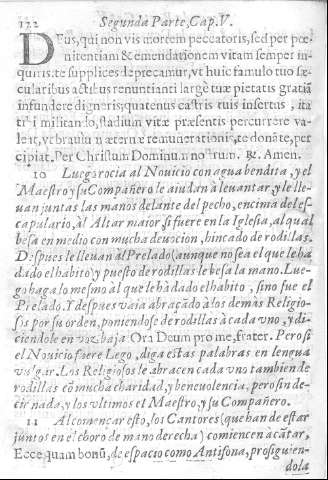 172 Segunda Parte, Cap. V.
DEus, qui non vis mortem peccatoris, sed per pœ-
nitentiam & emendationem vitam semper in-
quiris: te supplices deprecamur, vt huic famulo tuo sæ-
cularibus actibus renuntianti largè tuæ pietatis gratiã
infundere digneris; quatenus castris tuis insertus, ita
tibi militando, stadium vitæ præsentis percurrere va-
leat, vt brauiũ æternæ remunerationis, te donãte, per
cipiat. Per Christum Dominum nostrum. ℟. Amen.
10 Luego rocia al Nouicio con agua bendita, y el
Maestro y su Compañero le aiudan à leuantar, y le lle-
uan juntas las manos delante del pecho, encima del es-
capulario, àl Altar maior, si fuere en la Iglesia, al qual
besa en medio con mucha deuocion, hincado de rodillas.
Despues le lleuan àl Prelado (aunque no sea el que le ha
dado el habito) y puesto de rodillas le besa la mano. Lue-
go haga lo mesmo àl que le hà dado el habito, sino fue el
Prelado. Y despues vaia abraçãdo à los demàs Religio-
sos por su orden, poniendose de rodillas à cada vno, y di-
ciendole en voz baja Ora Deum pro me, frater. Pero si
el Nouicio fuere Lego, diga estas palabras en lengua
vulgar. Los Religiosos le abracen cada vno tambien de
rodillas cõ mucha charidad, y beneuolencia, pero sin de-
cir nada, y los vltimos el Maestro, y su Compañero.
11 Al començar esto, los Cantores (que han de estar
juntos en el choro de mano derecha) comiencen à cãtar,
Ecce quam bonũ, de espacio como Antifona, prosiguien-
dola